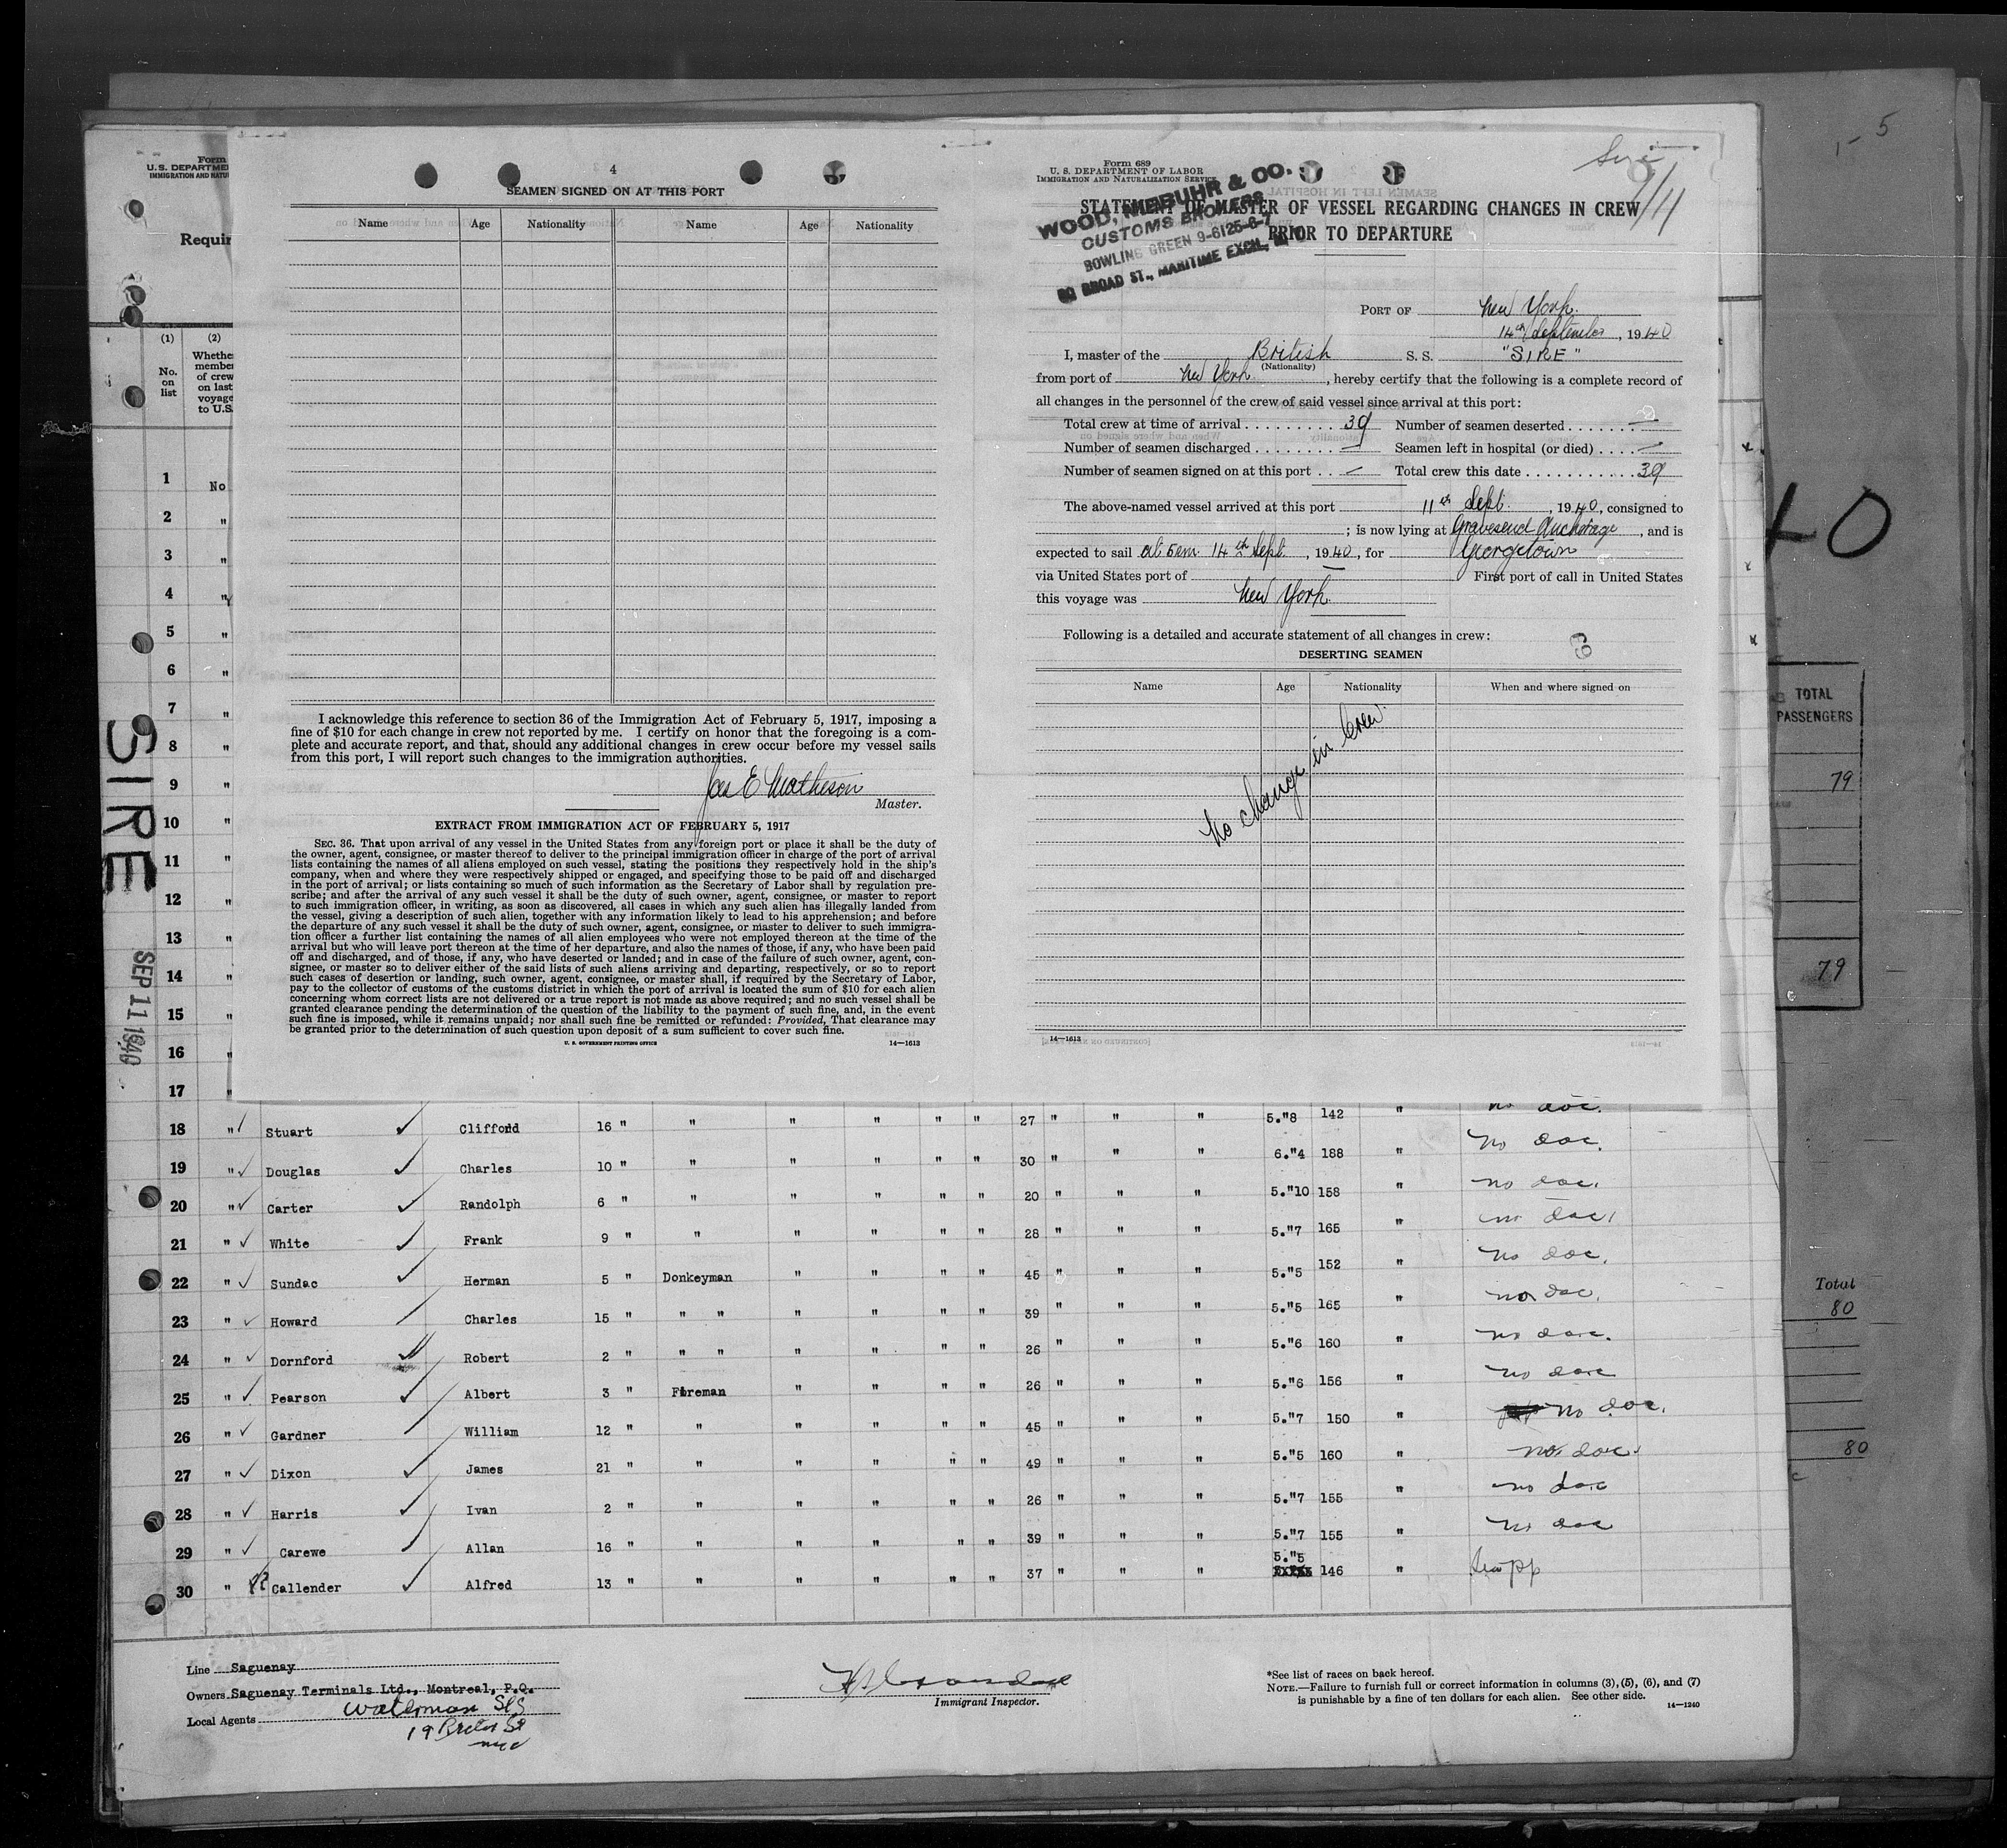 Form
U.S. DEPARTME
IMMIGRATION AND NATU
Requir
(1)
No.
on
list
(2)
Whethe
membe
of crew
on last
voyage
to U.S.
SIRE
SEP 11 1940
4
SEAMEN SIGNED ON AT THIS PORT
Name Age Nationality Name Age Nationality
I acknowledge this reference to section 36 of the Immigration Act of February 5, 1917, imposing a
fine of $10 for each change in crew not reported by me. I certify on honor that the foregoing is a com-
plete and accurate report, and that, should any additional changes in crew occur before my vessel sails
from this port, I will report such changes to the immigration authorities.
Jas E Matheson
Master.
EXTRACT FROM IMMIGRATION ACT OF FEBRUARY 5, 1917
SEC. 36. That upon arrival of any vessel in the United States from any foreign port or place it shall be the duty of
the owner, agent, consignee, or master thereof to deliver to the principal immigration officer in charge of the port of arrival
lists containing the names of all aliens employed on such vessel, stating the positions they respectively hold in the ship's
company, when and where they were respectively shipped or engaged, and specifying those to be paid off and discharged
in the port of arrival; or lists containing so much of such information as the Secretary of Labor shall by regulation pre-
scribe; and after the arrival of any such vessel it shall be the duty of such owner, agent, consignee, or master to report
to such immigration officer, in writing, as soon as discovered, all cases in which any such alien has illegally landed from
the vessel, giving a description of such alien, together with any information likely to lead to his apprehension; and before
the departure of any such vessel it shall be the duty of such owner, agent, consignee, or master to deliver to such immigra-
tion officer a further list containing the names of all alien employees who were not employed thereon at the time of the
arrival but who will leave port thereon at the time of her departure, and also the names of those, if any, who have been paid
off and discharged, and of those, if any, who have deserted or landed; and in case of the failure of such owner, agent, con-
signee, or master so to deliver either of the said lists of such aliens arriving and departing, respectively, or so to report
such cases of desertion or landing, such owner, agent, consignee, or master shall, if required by the Secretary of Labor,
pay to the collector of customs of the customs district in which the port of arrival is located the sum of $10 for each alien
concerning whom correct lists are not delivered or a true report is not made as above required; and no such vessel shall be
granted clearance pending the determination of the question of the liability to the payment of such fine, and, in the event
such fine is imposed, while it remains unpaid; nor shall such fine be remitted or refunded: Provided, That clearance may
be granted prior to the determination of such question upon deposit of a sum sufficient to cover such fine.
U. S. GOVERNMENT PRINTING OFFICE 14—1613
Form 689
U. S. DEPARTMENT OF LABOR
IMMIGRATION AND NATURALIZATION SERVICE
STATEMENT OF MASTER OF VESSEL REGARDING CHANGES IN CREW
PRIOR TO DEPARTURE
WOOD, NIEBUHR & CO.
CUSTOMS BROKERS
BOWLING GREEN 9-6125-6-7
80 BROAD ST., MARITIME EXCH., N. Y.
PORT OF New York.
14th September, 1940
I, master of the British S. S. "SIRE"
(Nationality)
from port of New York, hereby certify that the following is a complete record of
all changes in the personnel of the crew of said vessel since arrival at this port:
Total crew at time of arrival 39 Number of seamen deserted —
Number of seamen discharged — Seamen left in hospital (or died) —
Number of seamen signed on at this port — Total crew this date 39
The above-named vessel arrived at this port 11th Sept., 1940, consigned to
; is now lying at Gravesend Anchorage, and is
expected to sail at 5am 14th Sept, 1940, for Georgetown
via United States port of First port of call in United States
this voyage was New York.
Following is a detailed and accurate statement of all changes in crew:
DESERTING SEAMEN
Name Age Nationality When and where signed on
No change in Crew
14—1613
1 No
2 "
3 "
4 "
5 "
6 "
7 "
8 "
9 "
10 "
11 "
12 "
13 "
14 "
15 "
16 "
17 "
no doc.
18 " Stuart Clifford 16 " " " " " " 27 " " " 5."8 142 " no doc.
19 " Douglas Charles 10 " " " " " " 30 " " " 6."4 188 " no doc.
20 " Carter Randolph 6 " " " " " " 20 " " " 5."10 158 " no doc.
21 " White Frank 9 " " " " " " 28 " " " 5."7 165 " no doc.
22 " Sundac Herman 5 " Donkeyman " " " " 45 " " " 5."5 152 " no doc.
23 " Howard Charles 15 " " " " " " " 39 " " " 5."5 165 " no doc.
24 " Dornford Robert 2 " " " " " " " 26 " " " 5."6 160 " no doc.
25 " Pearson Albert 3 " Fireman " " " " 26 " " " 5."6 156 " no doc
26 " Gardner William 12 " " " " " " 45 " " " 5."7 150 " no doc.
27 " Dixon James 21 " " " " " " 49 " " " 5."5 160 " no doc.
28 " Harris Ivan 2 " " " " " " 26 " " " 5."7 155 " no doc
29 " Carewe Allan 16 " " " " " " 39 " " " 5."7 155 " no doc
30 " Callender Alfred 13 " " " " " " 37 " " " 5."5 146 "
Line Saguenay
Owners Saguenay Terminals Ltd., Montreal, P.Q.
Local Agents Waterman
19
Immigrant Inspector.
*See list of races on back hereof.
NOTE.—Failure to furnish full or correct information in columns (3), (5), (6), and (7)
is punishable by a fine of ten dollars for each alien. See other side.
14—1240
5
40
TOTAL
PASSENGERS
79
79
Total
80
80